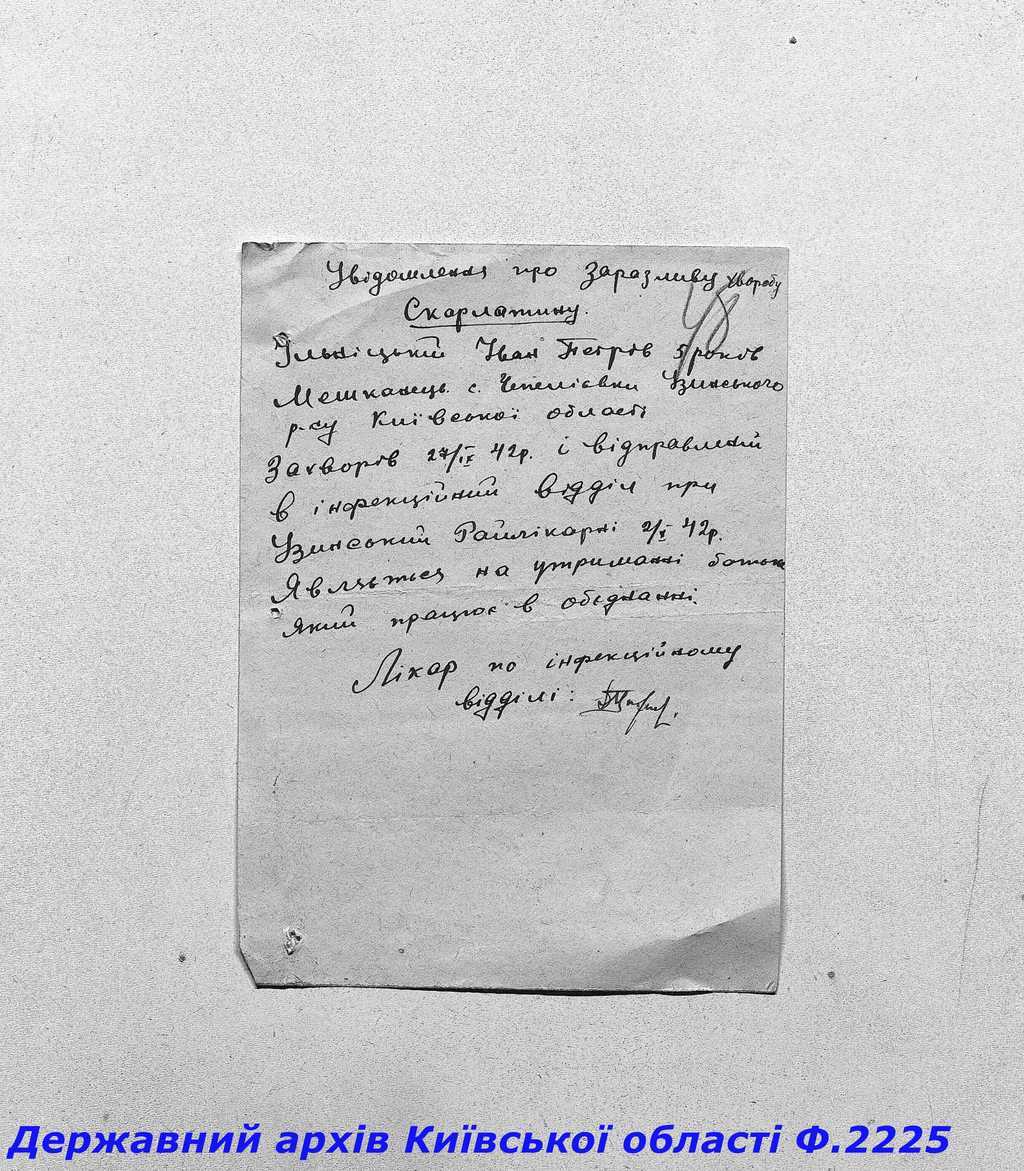 Увідомлення про Заразливу хворобу
48
Скарлатину.
Ільніцький Іван Петрів 5 років
Мешканець с. Чепеліевки Узинського
р-ну Київської області
Захворів 27/IX 42р. і відправлений
в інфекційний відділ при
Узинський Райлікарні 2/X 42р.
Являється на утриманні батька
який працює в обєднанні.
Лікар по інфекційному
відділі:
Державний архів Київської області Ф.2225